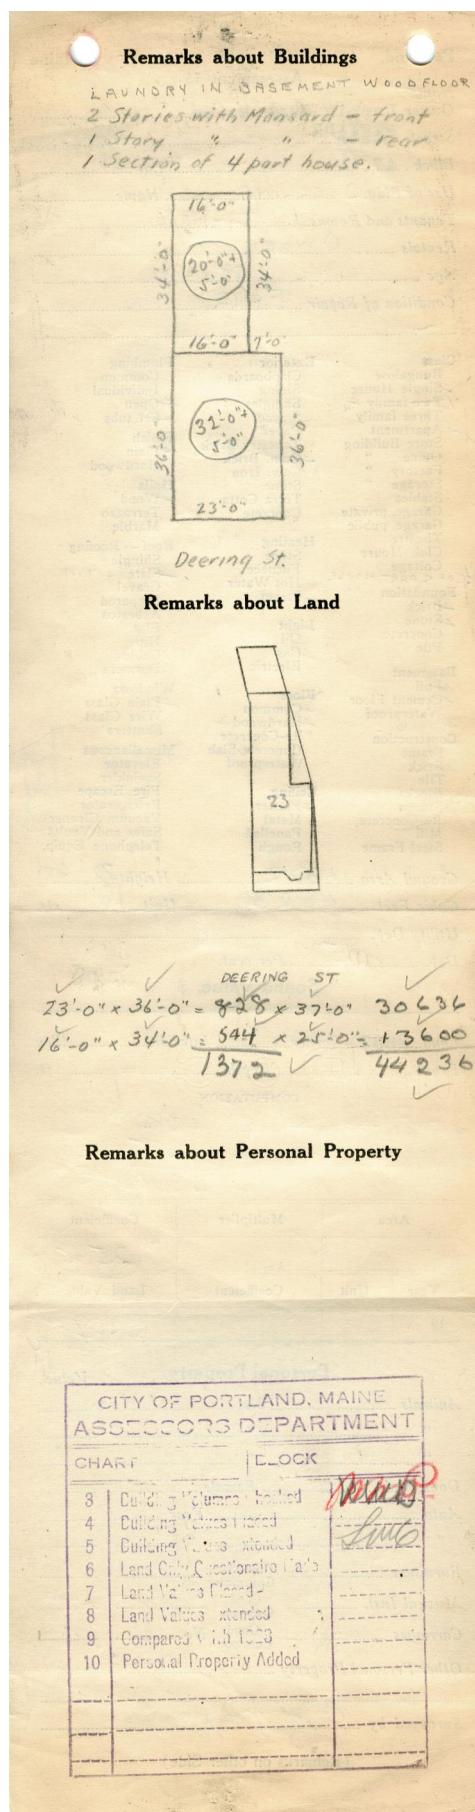 Remarks about Buildings
LAUNDRY IN BASEMENT WOODFLOOR
2 Stories with Mansard - front
1 Story " " - rear
1 Section of 4 part house.
16'-0"
34'-0"
20'-0"+
5'-0"
34'-0"
16'-0" 7'-0"
36'-0"
32'-0"+
5'-0"
36'-0"
23'-0"
Deering St.
Remarks about Land
23
DEERING ST.
23'-0" x 36'-0" = 828 x 37'-0" 30636
16'-0" x 34'-0" = 544 x 25'-0" = +3600
1372 44236
Remarks about Personal Property
CITY OF PORTLAND, MAINE
ASSESSORS DEPARTMENT
CHART BLOCK
3 Building Volumes Checked
4 Building Values Placed
5 Building Values Extended
6 Land Only Questionaire
7 Land Values Placed-
8 Land Values Extended
9 Compared With 1923
10 Personal Property Added